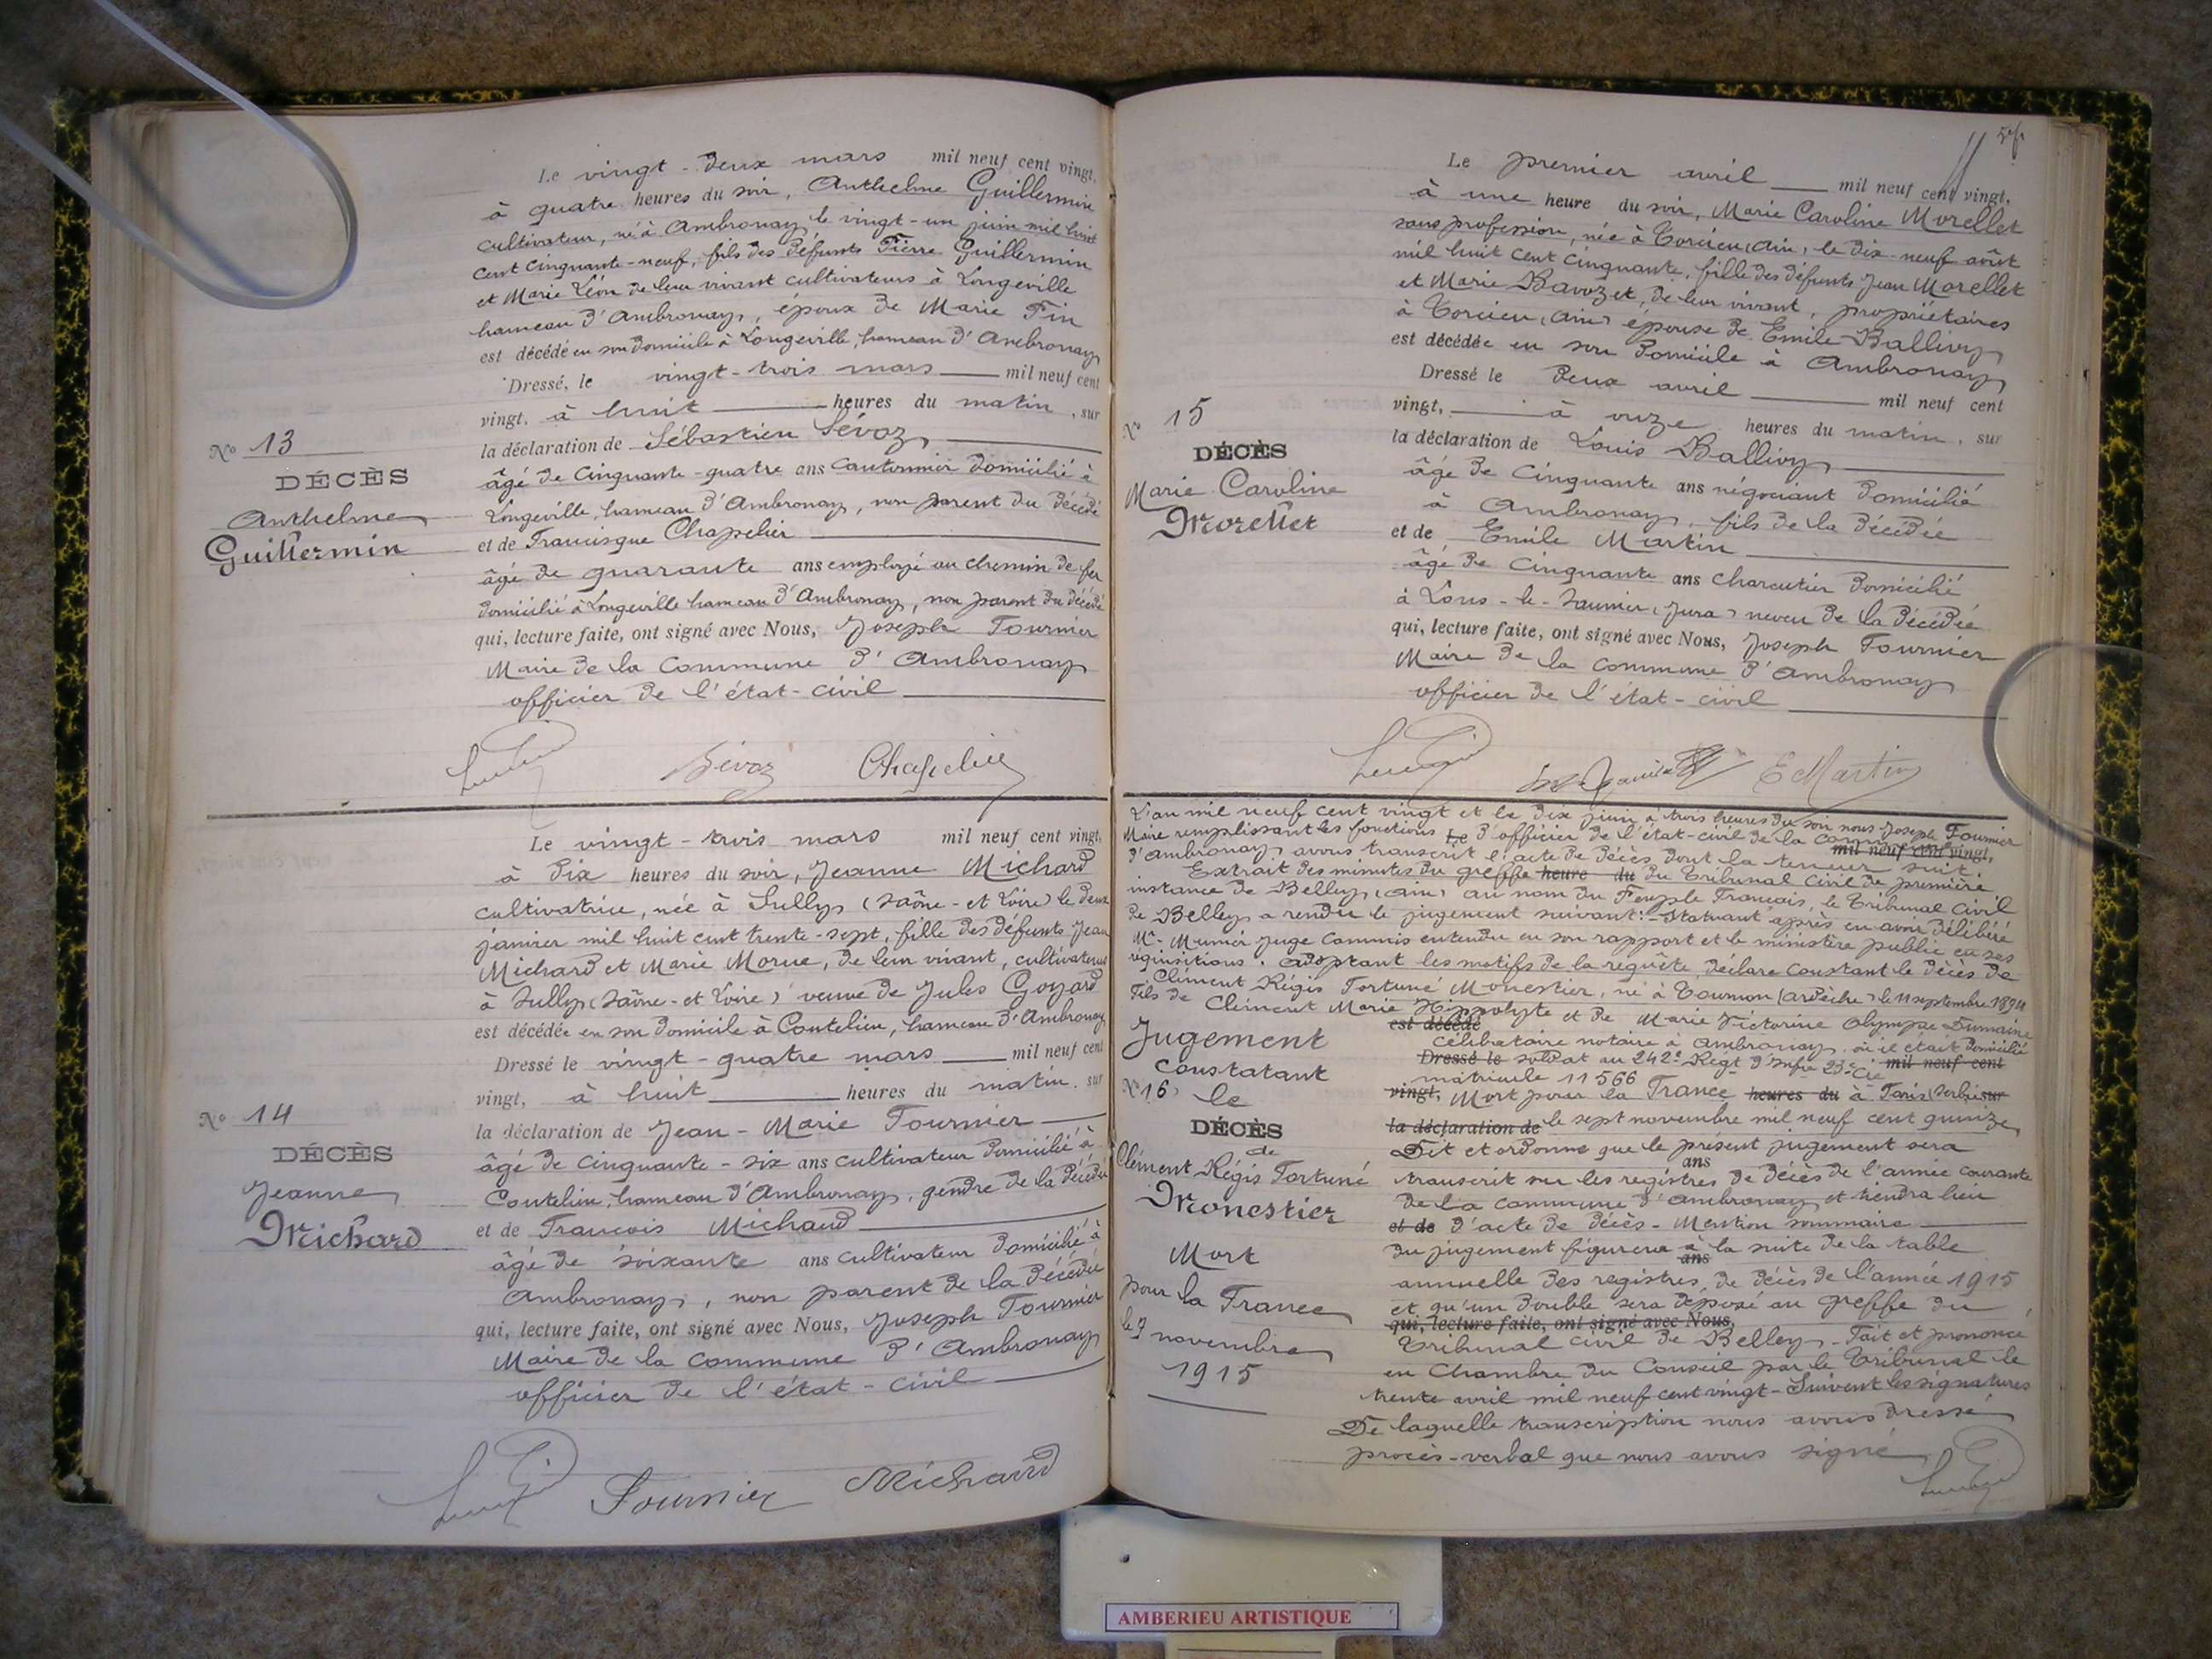 Le vingt-deux mars mil neuf cent vingt,
à quatre heures du soir, Anthelme Guillermin
cultivateur, né à Ambronay le vingt-un juin mil huit
cent cinquante-neuf, fils des défunts Pierre Guillermin
et Marie Léon de leur vivant cultivateurs à Longeville
hameau d'Ambronay, époux de Marie Fin
est décédé en son domicile à Longeville, hameau d'Ambronay
Dressé, le vingt-trois mars mil neuf cent
vingt, à huit heures du matin, sur
No 13
la déclaration de Sébastien Sévoz,
DÉCÈS
âgé de cinquante-quatre ans cantonnier domicilié à
Anthelme
Longeville, hameau d'Ambronay, non parent du décédé
Guillermin
et de Francisque Chapelier
âgé de quarante ans employé au chemin de fer
domicilié à Longeville hameau d'Ambronay, non parent du décédé
qui, lecture faite, ont signé avec Nous, Joseph Fournier
Maire de la commune d'Ambronay
officier de l'état-civil
Sévoz Chapelier
Le vingt-trois mars mil neuf cent vingt,
à dix heures du soir, Jeanne Michard
cultivatrice, née à Sully (Saône-et-Loire) le deux
janvier mil huit cent trente-sept, fille des défunts Jean
Michard et Marie Morue, de leur vivant, cultivateurs
à Sully (Saône-et-Loire) veuve de Jules Goyard
est décédée en son domicile à Coutelieu, hameau d'Ambronay
Dressé le vingt-quatre mars mil neuf cent
vingt, à huit heures du matin, sur
No 14
la déclaration de Jean-Marie Fournier
DÉCÈS
âgé de cinquante-six ans cultivateur domicilié à
Jeanne
Coutelieu, hameau d'Ambronay, gendre de la décédée
Michard
et de François Michaud
âgé de soixante ans cultivateur domicilié à
Ambronay, non parent de la décédée
qui, lecture faite, ont signé avec Nous, Joseph Fournier
Maire de la commune d'Ambronay
officier de l'état-civil
Fournier Michaud
Le premier avril mil neuf cent vingt,
à une heure du soir, Marie Caroline Morellet
sans profession, née à Torcieu (Ain) le dix-neuf août
mil huit cent cinquante, fille des défunts Jean Morellet
et Marie Bavozet, de leur vivant, propriétaires
à Torcieu (Ain) épouse de Emile Ballivy
est décédée en son domicile à Ambronay
Dressé le deux avril mil neuf cent
vingt, à onze heures du matin, sur
No 15
la déclaration de Louis Ballivy
DÉCÈS
âgé de cinquante ans négociant domicilié
Marie Caroline
à Ambronay, fils de la décédée
Morellet
et de Emile Martin
âgé de cinquante ans charcutier domicilié
à Lons-le-Saunier (Jura) neveu de la décédée
qui, lecture faite, ont signé avec Nous, Joseph Fournier
Maire de la commune d'Ambronay
officier de l'état-civil
E Martin
L'an mil neuf cent vingt et le dix juin à trois heures du soir nous Joseph Fournier
Maire remplissant les fonctions de d'officier de l'état-civil de la commune
mil neuf cent vingt,
d'Ambronay avons transcrit l'acte de décès dont la teneur suit:
Extrait des minutes du greffe heure du du Tribunal Civil de première
instance de Belley (Ain) au nom du Peuple Français, le Tribunal Civil
de Belley a rendu le jugement suivant:- Statuant après en avoir délibéré
Mr Munier Juge commis entendu en son rapport et le ministère public en ses
réquisitions. Adoptant les motifs de la requête, déclare constant le décès de
Clément Régis Fortuné Monestier, né à Tournon (Ardèche) le 11 septembre 1894
Fils de Clément Marie Hippolyte et de Marie Victorine Olympe Dumaine
est décédé
célibataire notaire à Ambronay, où il était domicilié
Dressé le soldat au 242e Regt d'Infie 23e Cie mil neuf cent
matricule 11566
vingt, Mort pour la France heures du à Paris (Serbie sur
la déclaration de le sept novembre mil neuf cent quinze
Jugement
Constatant
No 16 le
DÉCÈS
de
Clément Régis Fortuné
Monestier
Mort
pour la France
le 7 novembre
1915
Dit et ordonne que le présent jugement sera
ans
transcrit sur les registres de décès de l'année courante
de la commune d'Ambronay et tiendra lieu
et de d'acte de décès - Mention sommaire
du jugement figurera à la suite de la table
ans
annuelle des registres de décès de l'année 1915
et qu'un double sera déposé au greffe du
qui, lecture faite, ont signé avec Nous,
Tribunal civil de Belley. Fait et prononcé
en Chambre du Conseil par le Tribunal le
trente avril mil neuf cent vingt - Suivent les signatures
De laquelle transcription nous avons dressé
procès-verbal que nous avons signé
AMBERIEU ARTISTIQUE